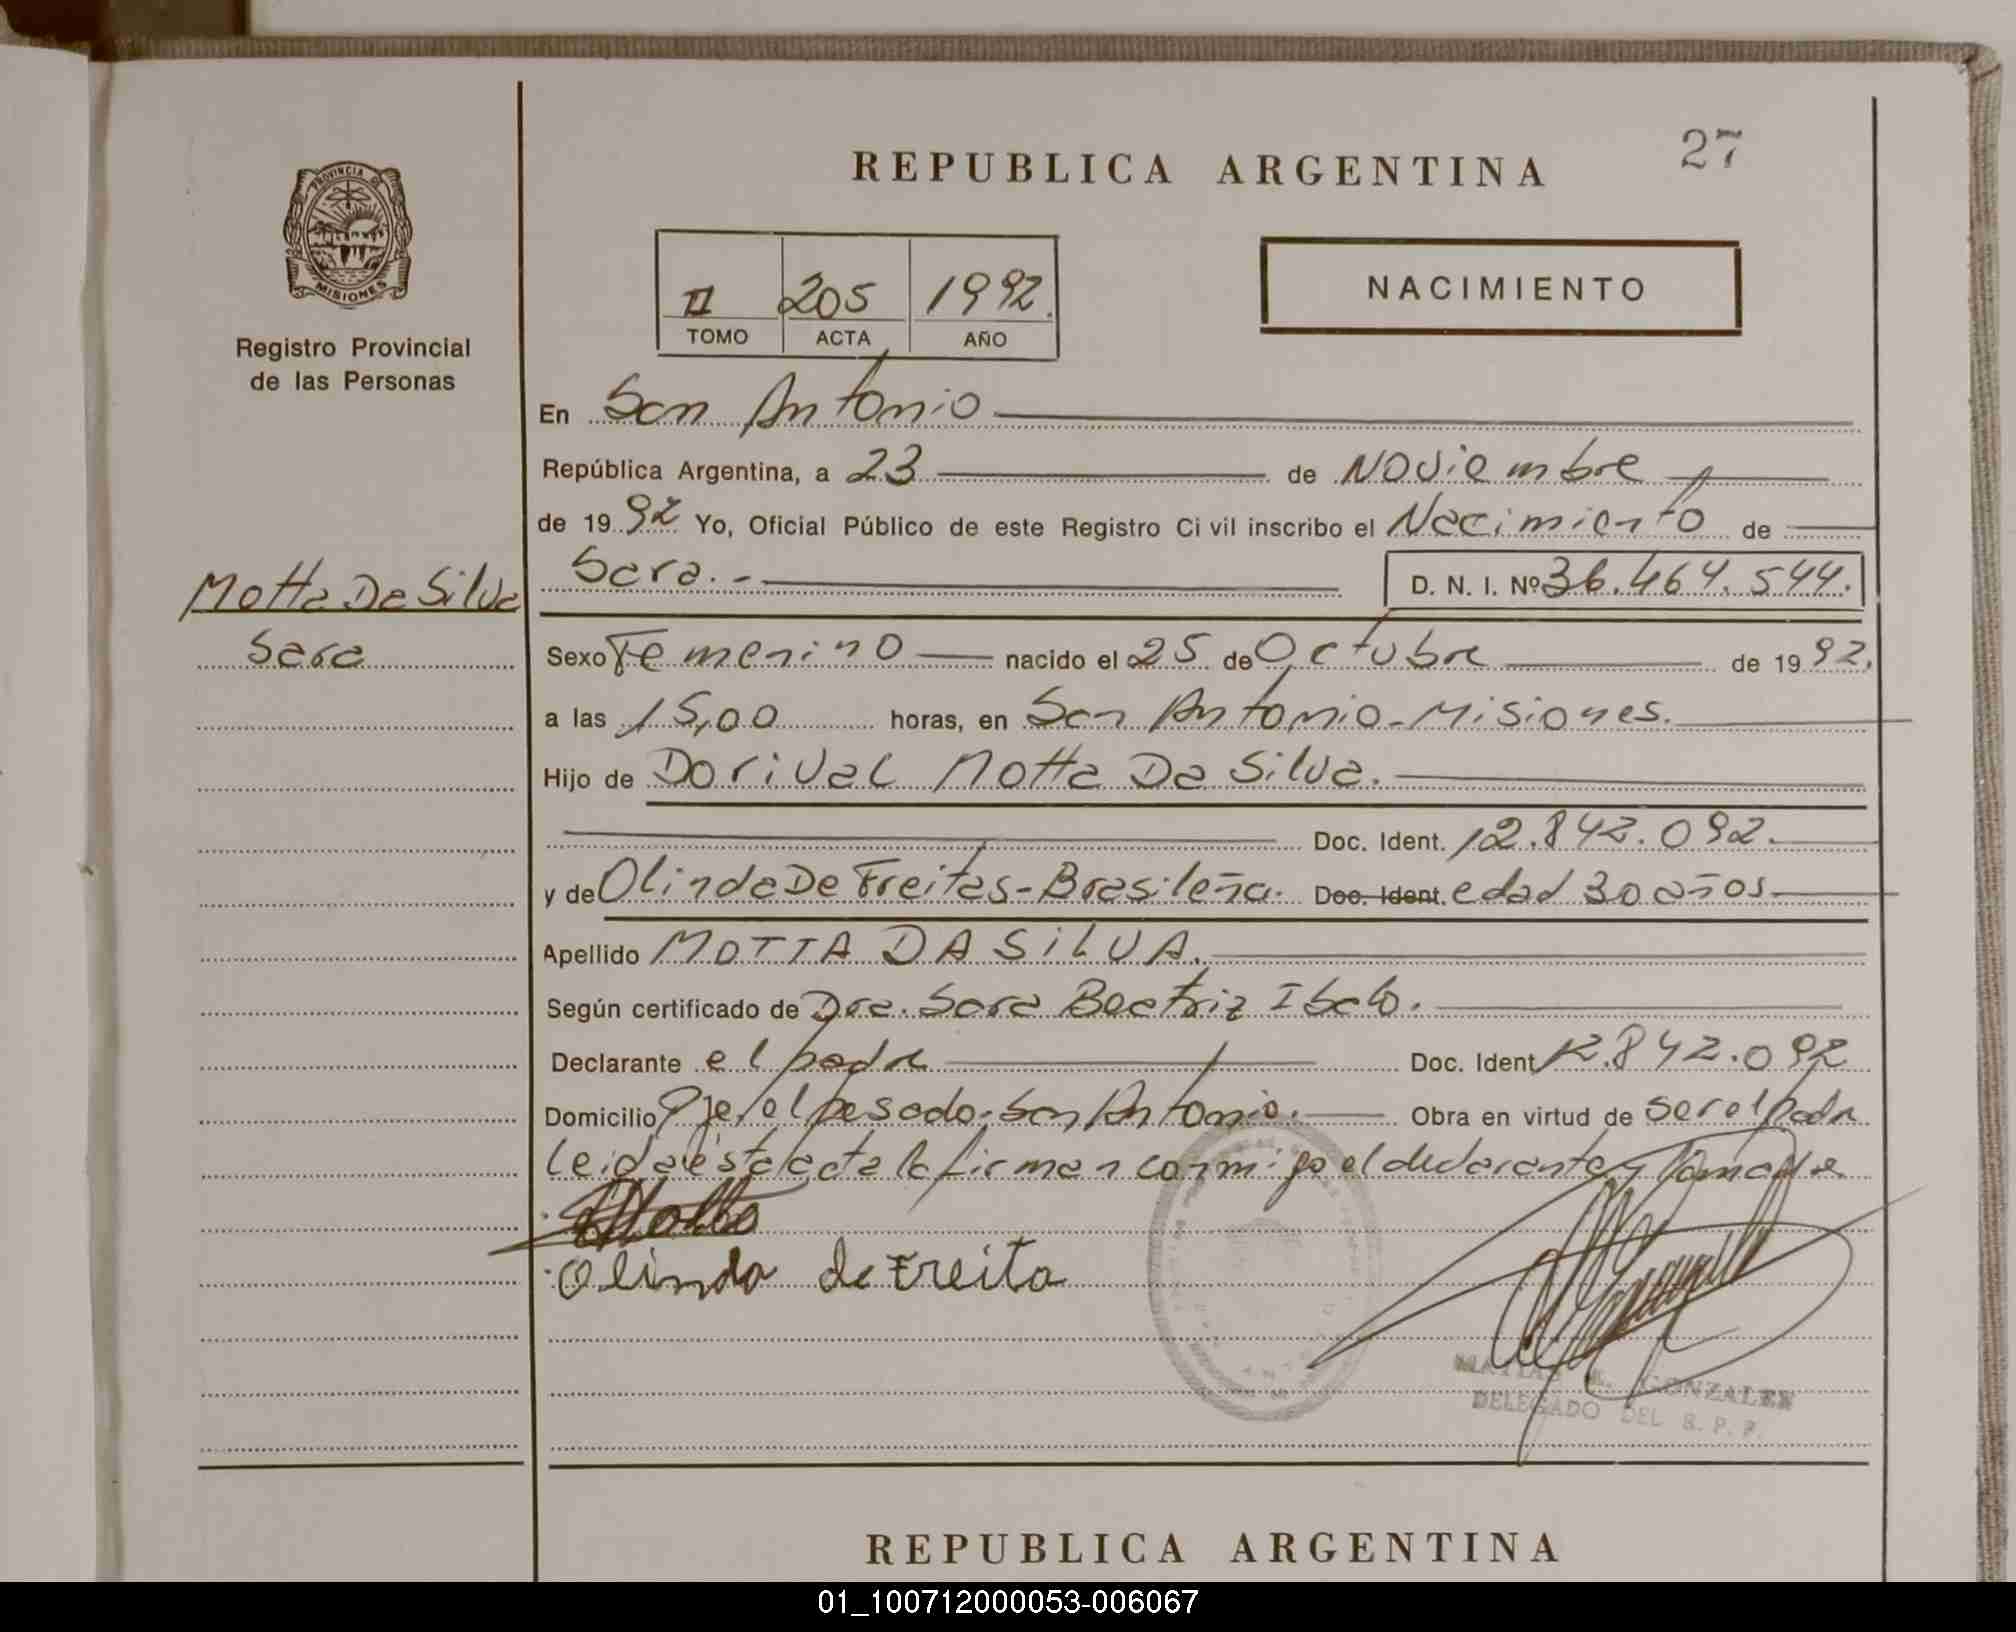 27
REPUBLICA ARGENTINA
PROVINCIA DE
MISIONES
Registro Provincial
de las Personas
II 205 1992.
TOMO ACTA AÑO
NACIMIENTO
En San Antonio
República Argentina, a 23 de Noviembre
de 1992 Yo, Oficial Público de este Registro Civil inscribo el Nacimiento de
Sara.- D. N. I. Nº 36.464.544.
Motta Da Silva
Sara
Sexo Femenino nacido el 25 de Octubre de 1992.
a las 15,00 horas, en San Antonio-Misiones.
Hijo de Dorival Motta Da Silva.
Doc. Ident. 12.842.092.
y de Olinda De Freitas-Brasileña. Doc. Ident. edad 30 años
Apellido MOTTA DA SILVA.
Según certificado de Dra. Sara Beatriz Ibalo.
Declarante el padre Doc. Ident 12.842.092
Domicilio Pje. el pesado-San Antonio. Obra en virtud de ser el padre
leida esta acta la firman conmigo el declarante y la madre
Motta
Olinda de Freita
MATIAS GONZALEZ
DELEGADO DEL R. P. P.
REPUBLICA ARGENTINA
01_100712000053-006067